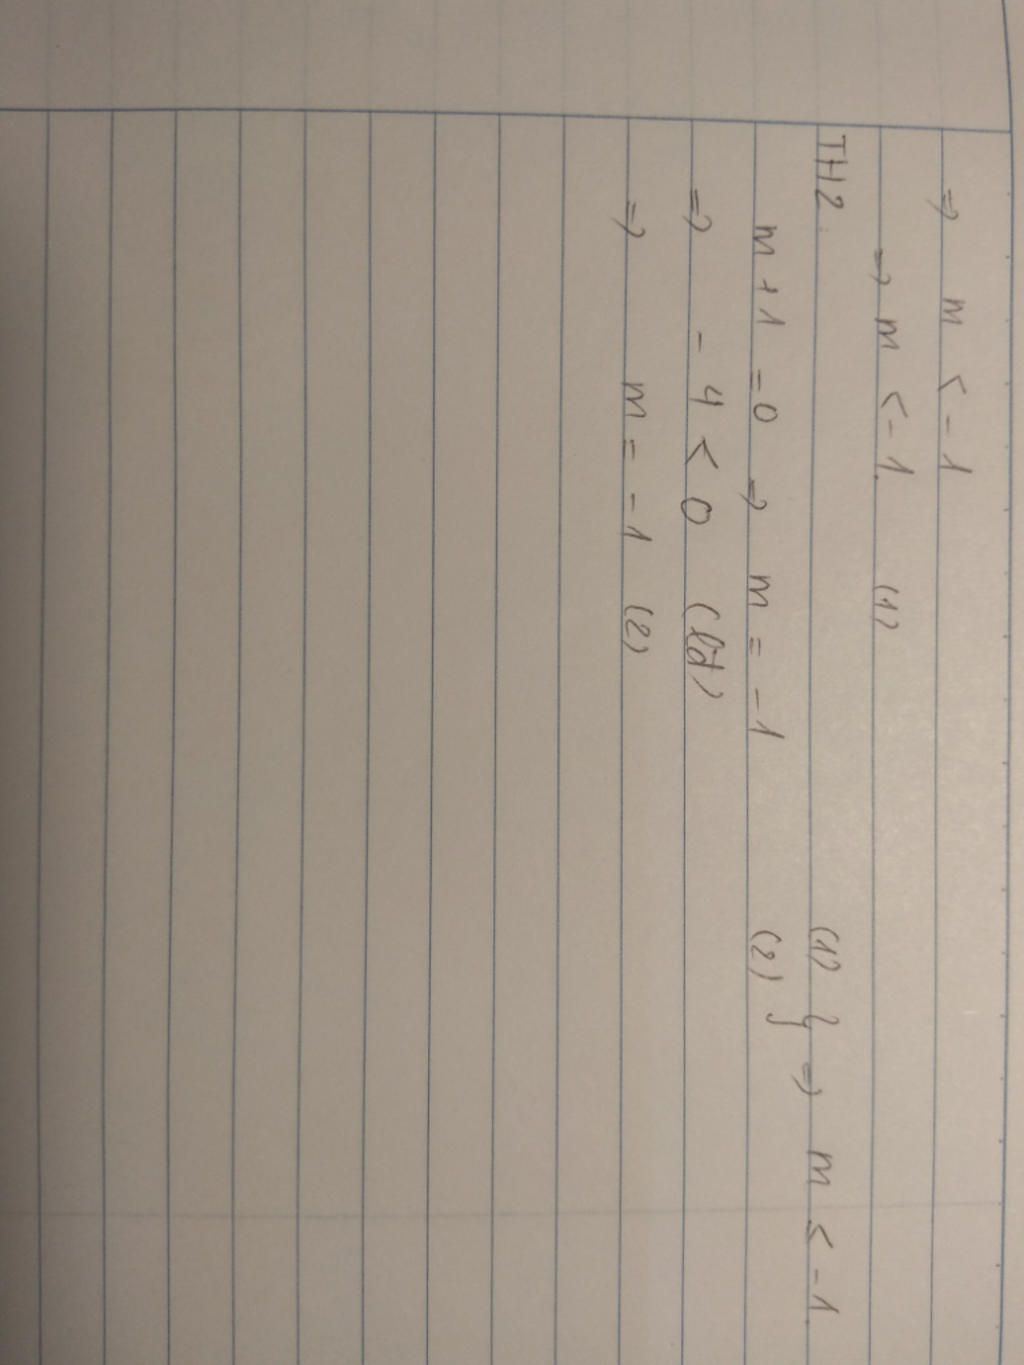 ⇒ m < -1
⇒ m < -1. (1)
TH2:
m + 1 = 0 ⇒ m = -1
⇒ - 4 < 0 (lđ)
⇒ m = -1 (2)
(1)
(2) } ⇒ m ≤ -1.